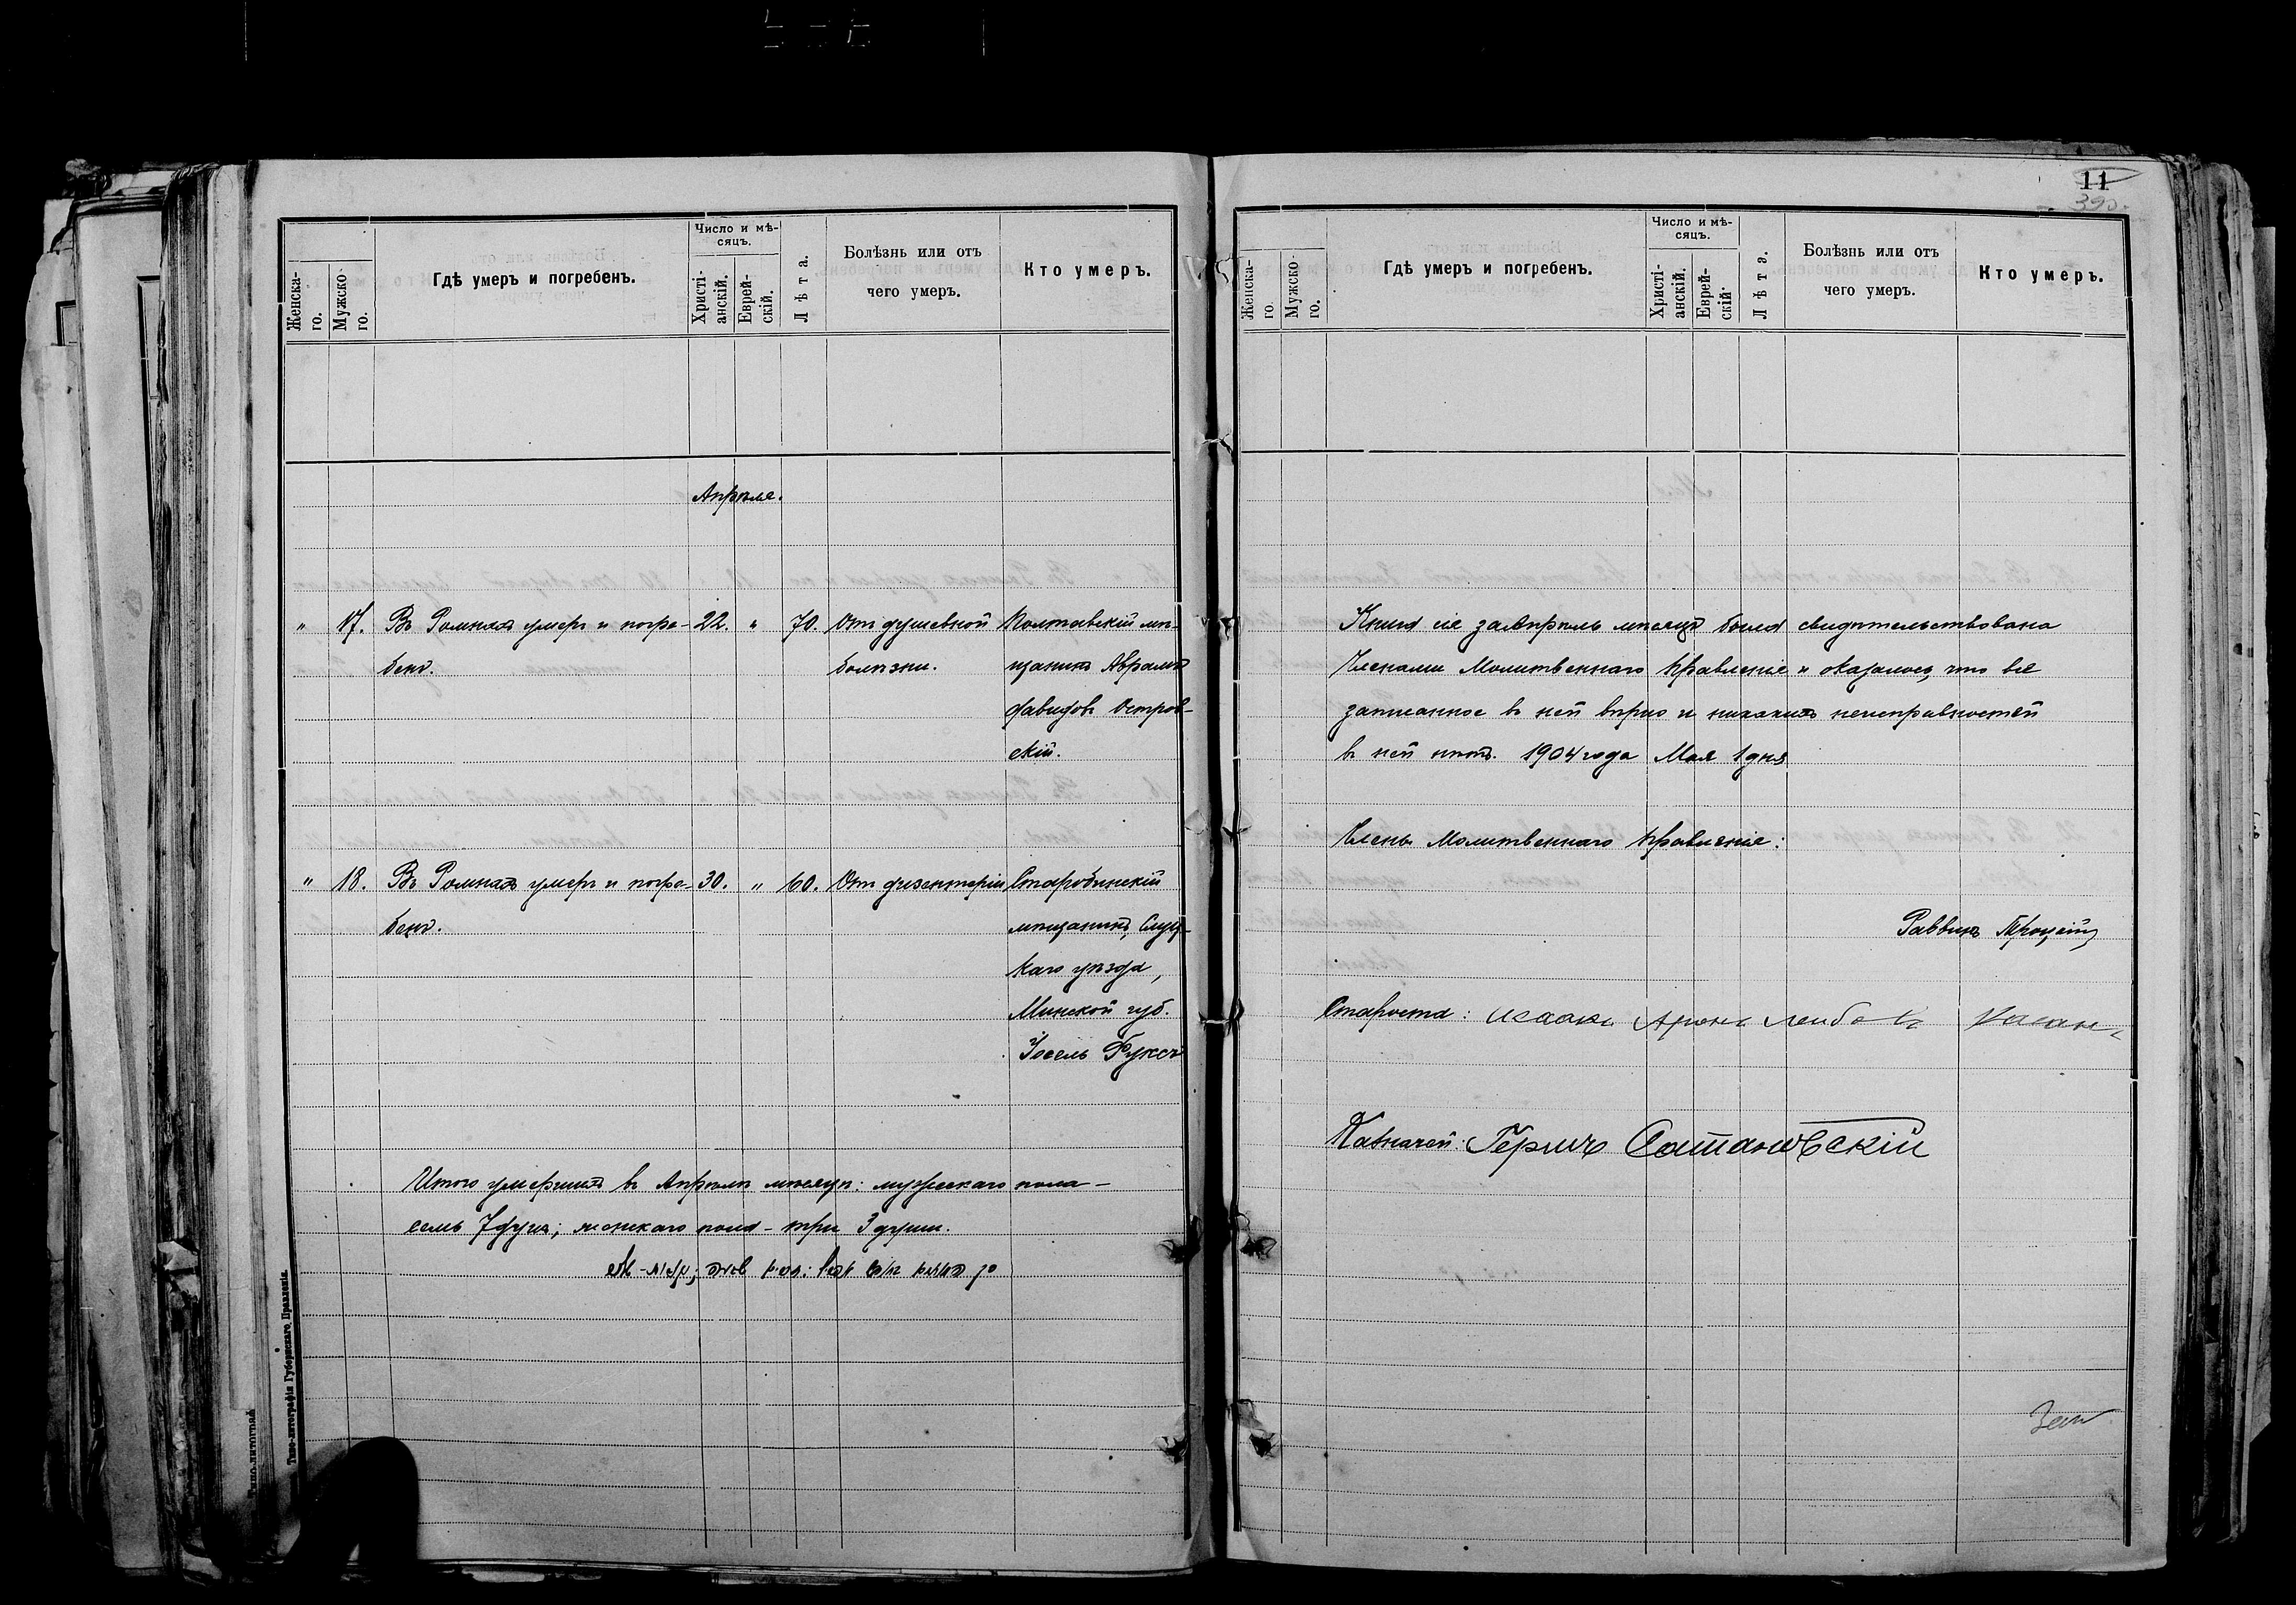 Женска-
го.
Мужско-
го.
Гдѣ умеръ и погребенъ.
Число и мѣ-
сяцъ.
Христі-
анскій.
Еврей-
скій.
Лѣта.
Болѣзнь или отъ
чего умеръ.
Кто умеръ.
Апрѣле.
" 17. Въ Ромнахъ умеръ и погре- 22. " 70. Отъ душевной Полтавскій мѣ-
бенъ. болѣзни. щанинъ Аврамъ
Давидовъ Остров-
скій.
" 18. Въ Ромнахъ умеръ и погре- 30. " 60. Отъ дизентеріи Старобинскій
бенъ. мѣщанинъ, Слуц-
каго уѣзда,
Минской губ.
Іосель Фуксъ
Итого умершихъ въ Апрѣлѣ мѣсяцѣ: мужескаго пола -
семь 7 душъ; женскаго пола - три 3 души.
Типо-литографія Губернскаго Правленія.
11
390.
Женска-
го
Мужско-
го.
Гдѣ умеръ и погребенъ.
Число и мѣ-
сяцъ.
Христі-
анскій.
Еврей-
скій.
Лѣта.
Болѣзнь или отъ
чего умеръ.
Кто умеръ.
Книга сія за Апрѣль мѣсяцъ была свидѣтельствована
Членами Молитвеннаго Правленіе и оказалось, что всё
записанное въ ней вѣрно и никакихъ неисправностей
въ ней нѣтъ. 1904 года Мая 1 дня
Члены Молитвеннаго Правленіе:
Раввинъ
Староста: Исаакъ Аронъ Лейбовъ Каганъ
Казначей: Герша Сатановскій